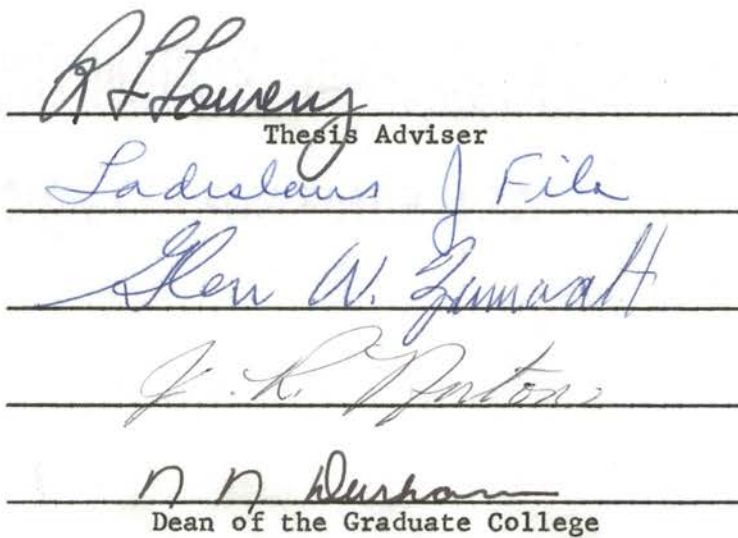 R L Lowery
Thesis Adviser
Ladislaus J Fila
Glen W. Zumwalt
J. R. Norton
N N Durham
Dean of the Graduate College